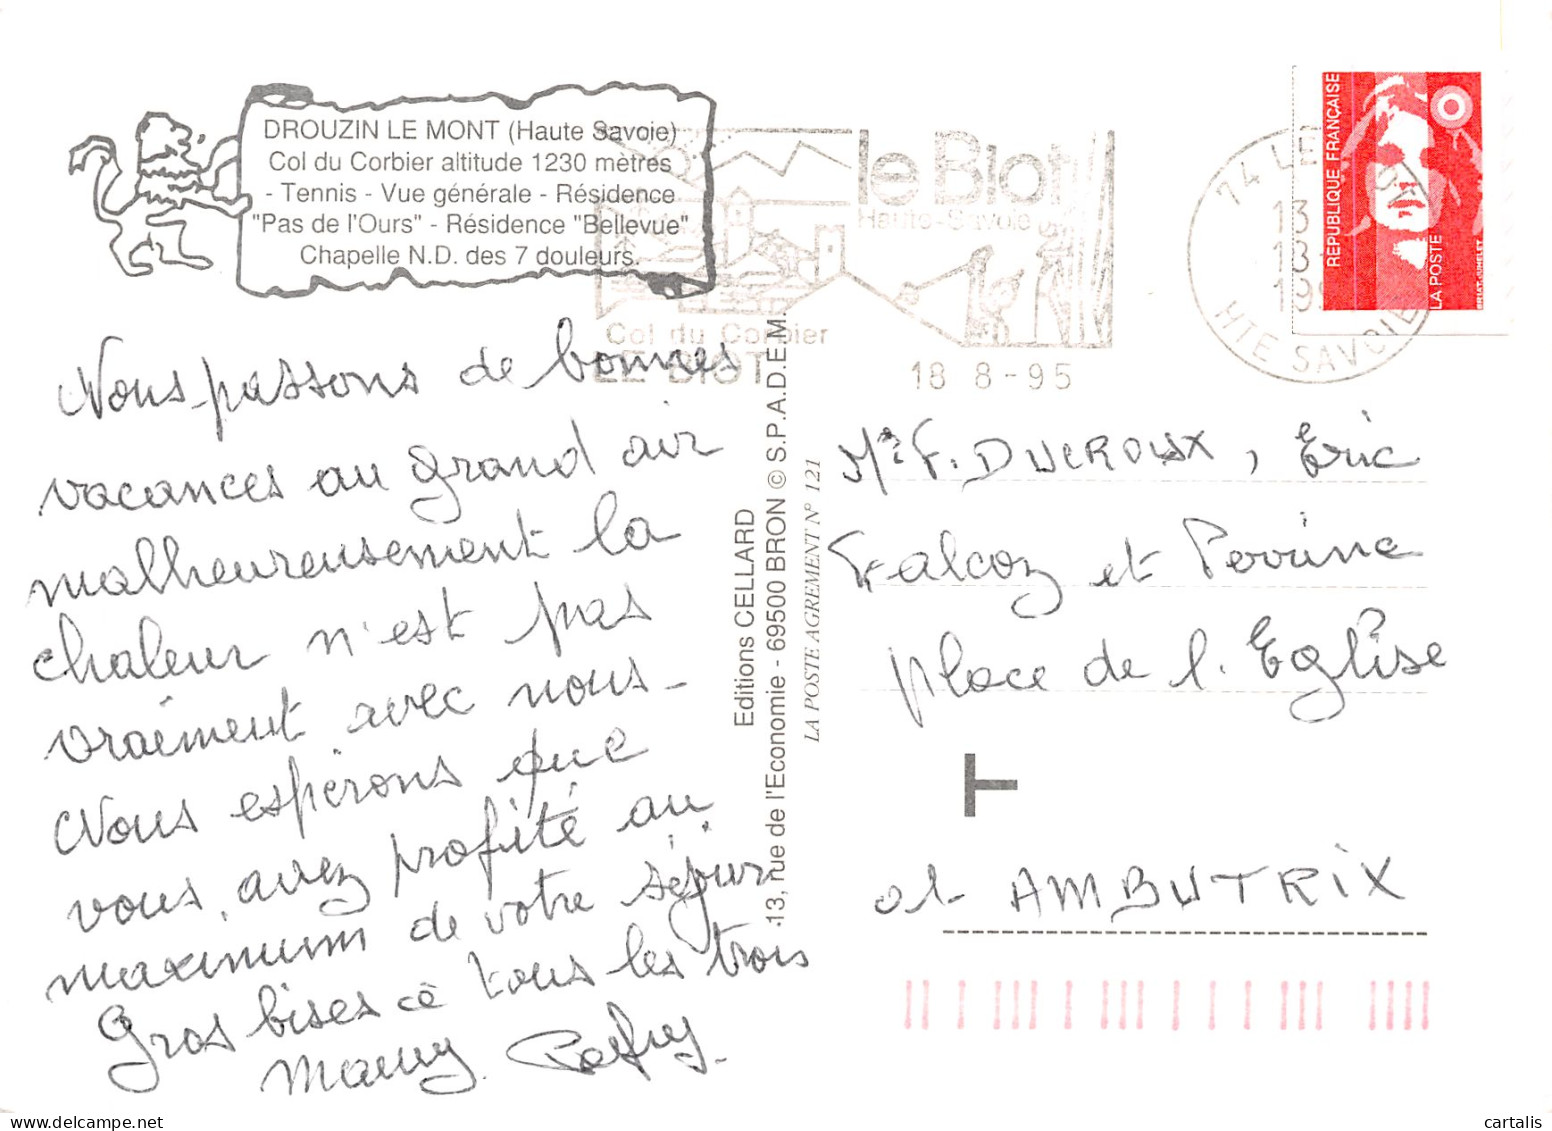 DROUZIN LE MONT (Haute Savoie)
Col du Corbier altitude 1230 mètres
- Tennis - Vue générale - Résidence
"Pas de l'Ours" - Résidence "Bellevue"
Chapelle N.D. des 7 douleurs.
le Biot
Haute-Savoie
Col du Corbier
LE BIOT
18 8-95
74 LE
13
13
19
HTE SAVOIE
REPUBLIQUE FRANÇAISE
LA POSTE
Nous passons de bonnes
vacances au grand air
malheureusement la
chaleur n'est pas
vraiment avec nous_
Nous espérons que
vous avez profité au
maximum de votre séjour
Gros bises à tous les trois
Mamy
Editions CELLARD
13, rue de l'Economie - 69500 BRON © S.P.A.D.E.M.
LA POSTE AGREMENT N° 121
F. DUCROUX, Eric
Falcoz et Perrine
place de l'Eglise
T
01- AMBUTRIX
cartalis